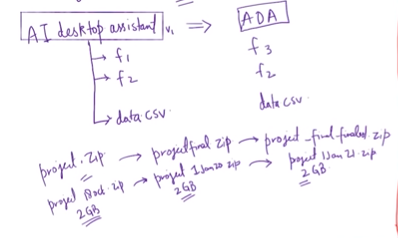 AI desktop assistant v1 ⇒ ADA
f1 f3
f2 f2
data.csv data.csv
project.zip → projectfinal.zip → project_final-finalest.zip
project 1Oct.zip → project 1Jan20.zip → project 1Jan21.zip
2GB 2GB 2GB